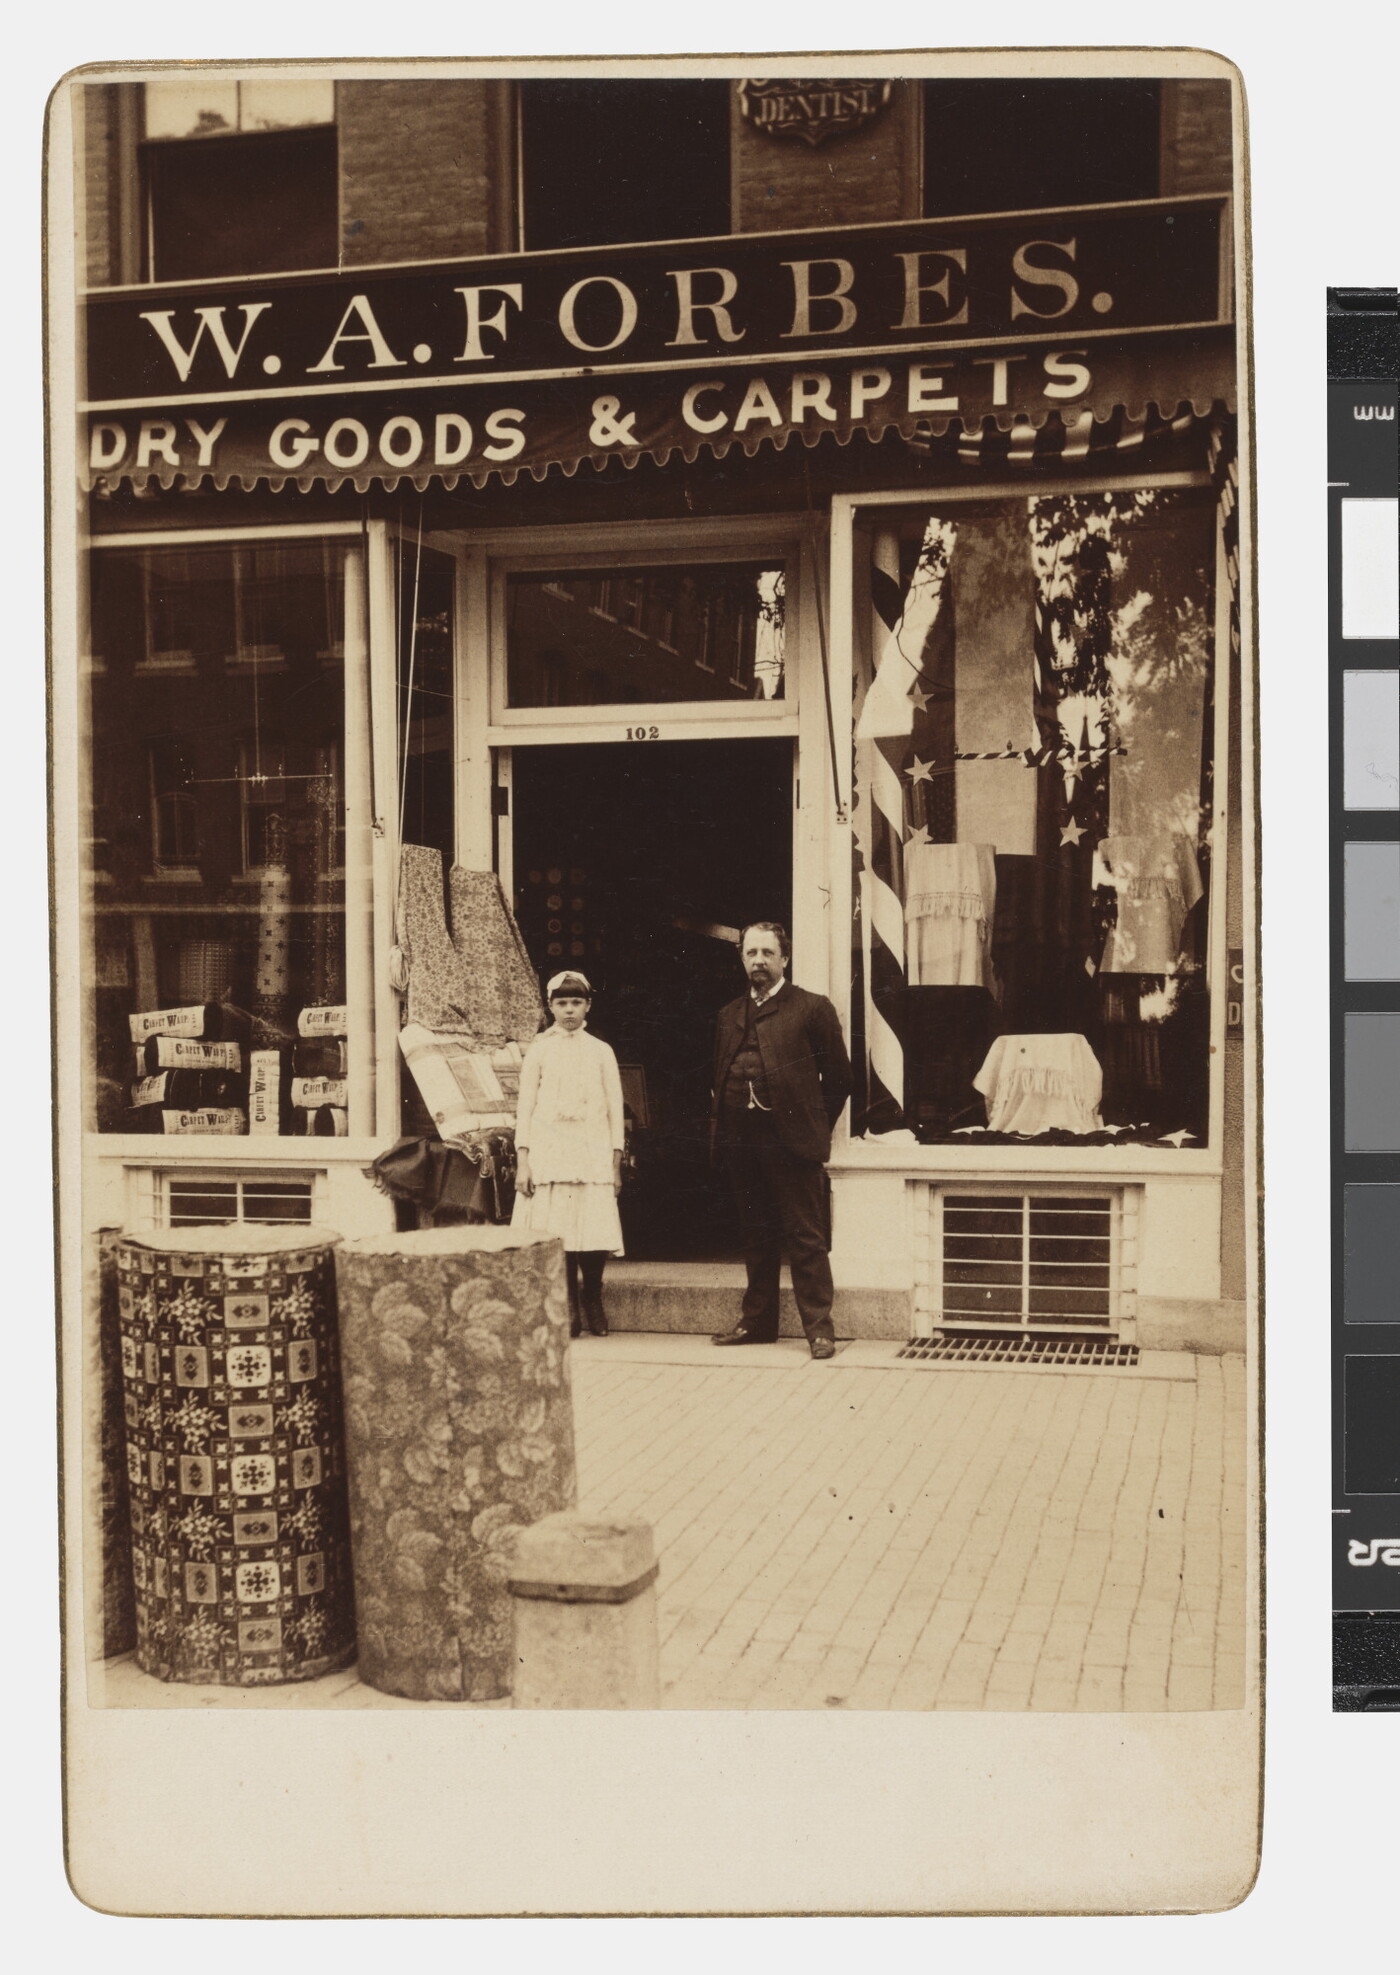 DENTIST.
W. A. FORBES.
DRY GOODS & CARPETS
102
CARPET WARP
CARPET WARP
CARPET WARP
CARPET WARP
CARPET WARP
CARPET WARP